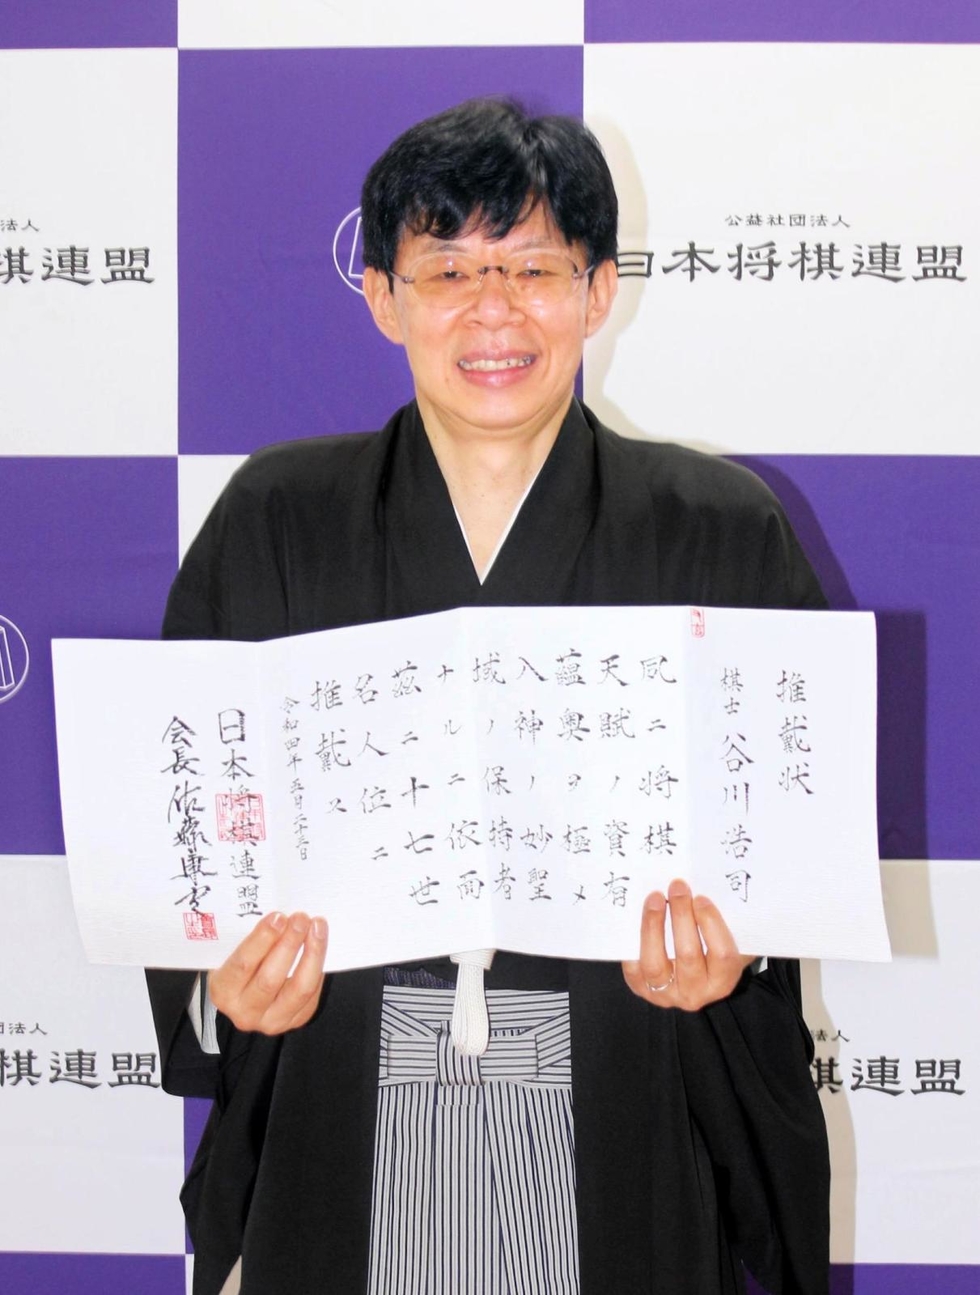 推戴状
棋士 谷川浩司
夙ニ将棋
天賦ノ資有
蘊奥ヲ極メ
入神ノ妙聖
域ノ保持者
ナルニ依而
茲ニ十七世
名人位ニ
推戴ス
令和四年五月二十三日
日本将棋連盟
会長 佐藤康光
法人
棋連盟
公益社団法人
日本将棋連盟
団法人
棋連盟
法人
棋連盟